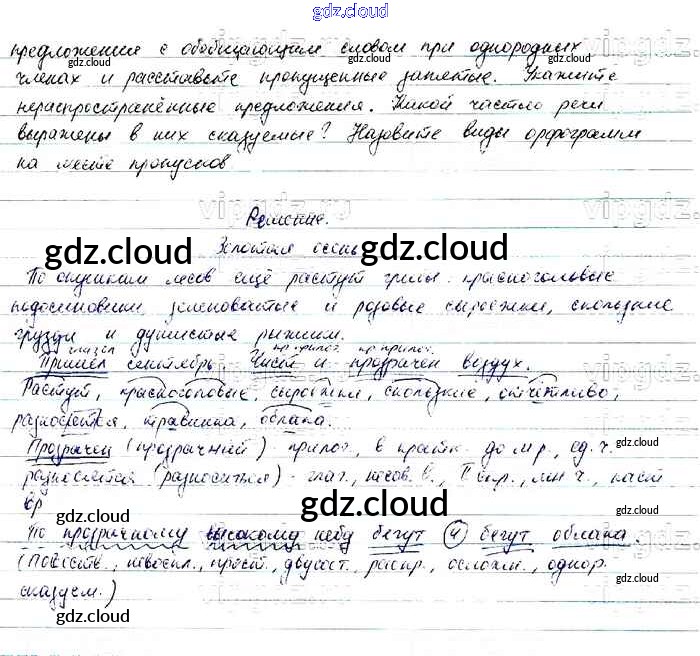 gdz.cloud
предложения с обобщающим словом при однородных
членах и расставьте пропущенные запятые. Укажите
нераспространённые предложения. Какой частью речи
выражены в них сказуемые? Назовите виды орфограмм
на месте пропусков
Решение.
Золотая осень
По опушкам лесов ещё растут грибы: красноголовые
подосиновики, зеленоватые и розовые сыроежки, скользкие
грузди и душистые рыжики.
глагол кр. прилаг. кр. прилаг.
Пришёл сентябрь. Чист и прозрачен воздух.
Растут, красноголовые, сыроежки, скользкие, отчётливо,
разносятся, травинка, облака.
Прозрачен (прозрачный) - прилаг., в кратк. ф., м.р., ед. ч.
разносятся (разноситься) - глаг., несов. в., I спр., мн. ч., наст
вр
По прозрачному высокому небу бегут (4) бегут облака.
(Повеств., невоскл., прост., двусост., распр., осложн., однор.
сказуем.)